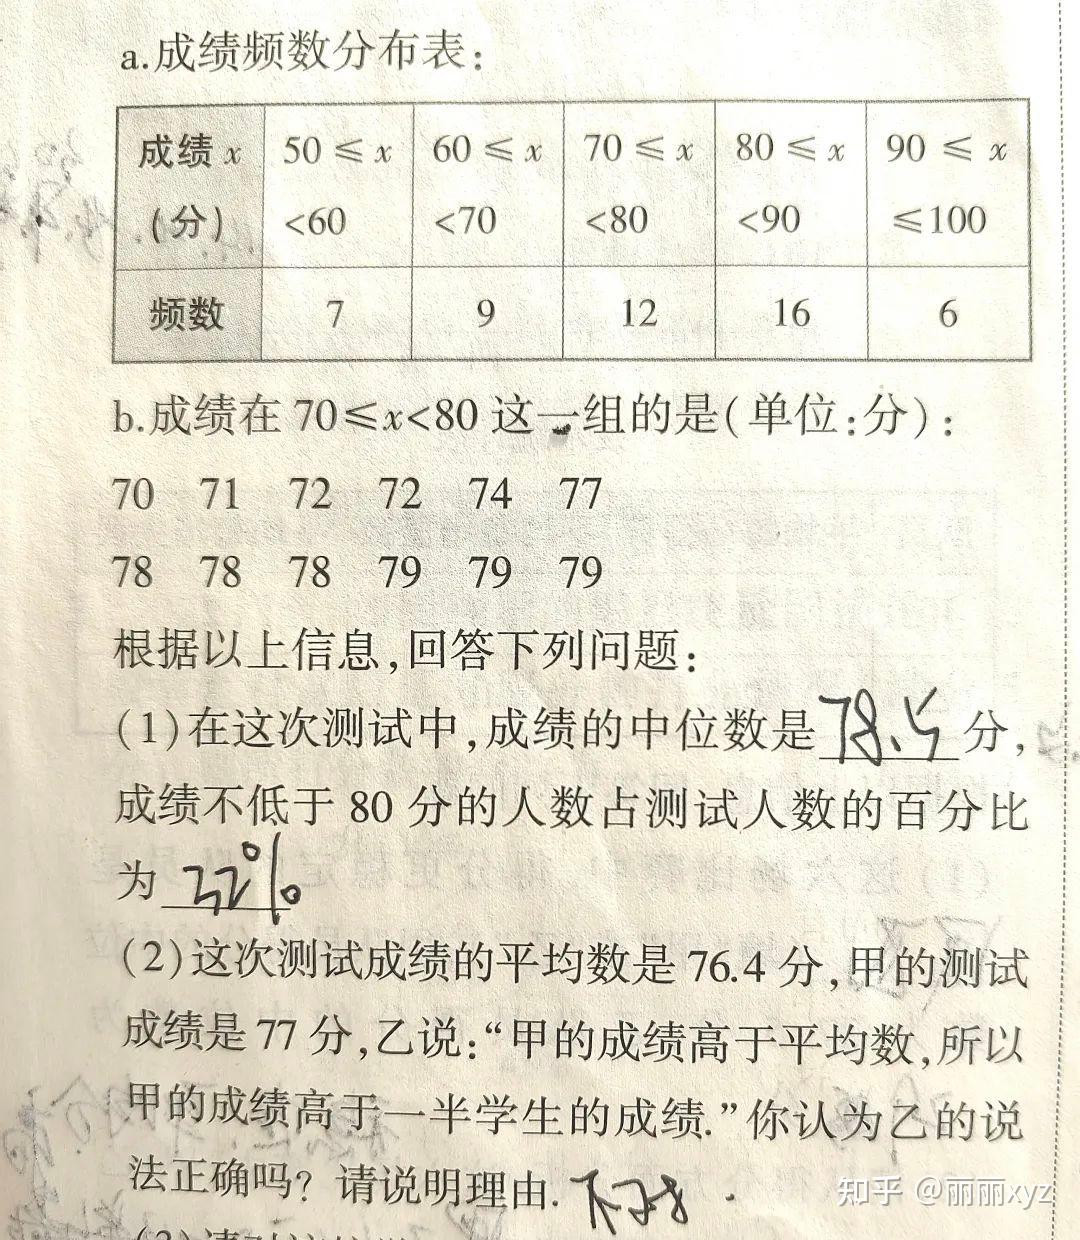 a.成绩频数分布表：
成绩x（分） 50≤x<60 60≤x<70 70≤x<80 80≤x<90 90≤x≤100
频数 7 9 12 16 6
b.成绩在70≤x<80这一组的是（单位：分）：
70 71 72 72 74 77
78 78 78 79 79 79
根据以上信息,回答下列问题：
(1)在这次测试中,成绩的中位数是78.5分,
成绩不低于80分的人数占测试人数的百分比
为
(2)这次测试成绩的平均数是76.4分,甲的测试
成绩是77分,乙说:“甲的成绩高于平均数,所以
甲的成绩高于一半学生的成绩.”你认为乙的说
法正确吗？请说明理由.
知乎 @丽丽xyz